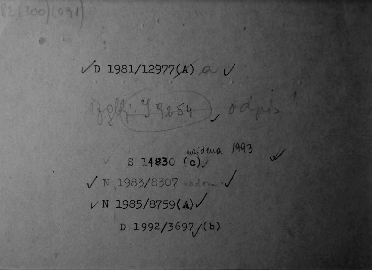 82(100)(091)
D 1981/12977(A) a
I 9254 odpis
izdema 1993
S 14830 (c)
N 1983/8307
N 1985/8759(A)
D 1992/3697/(b)